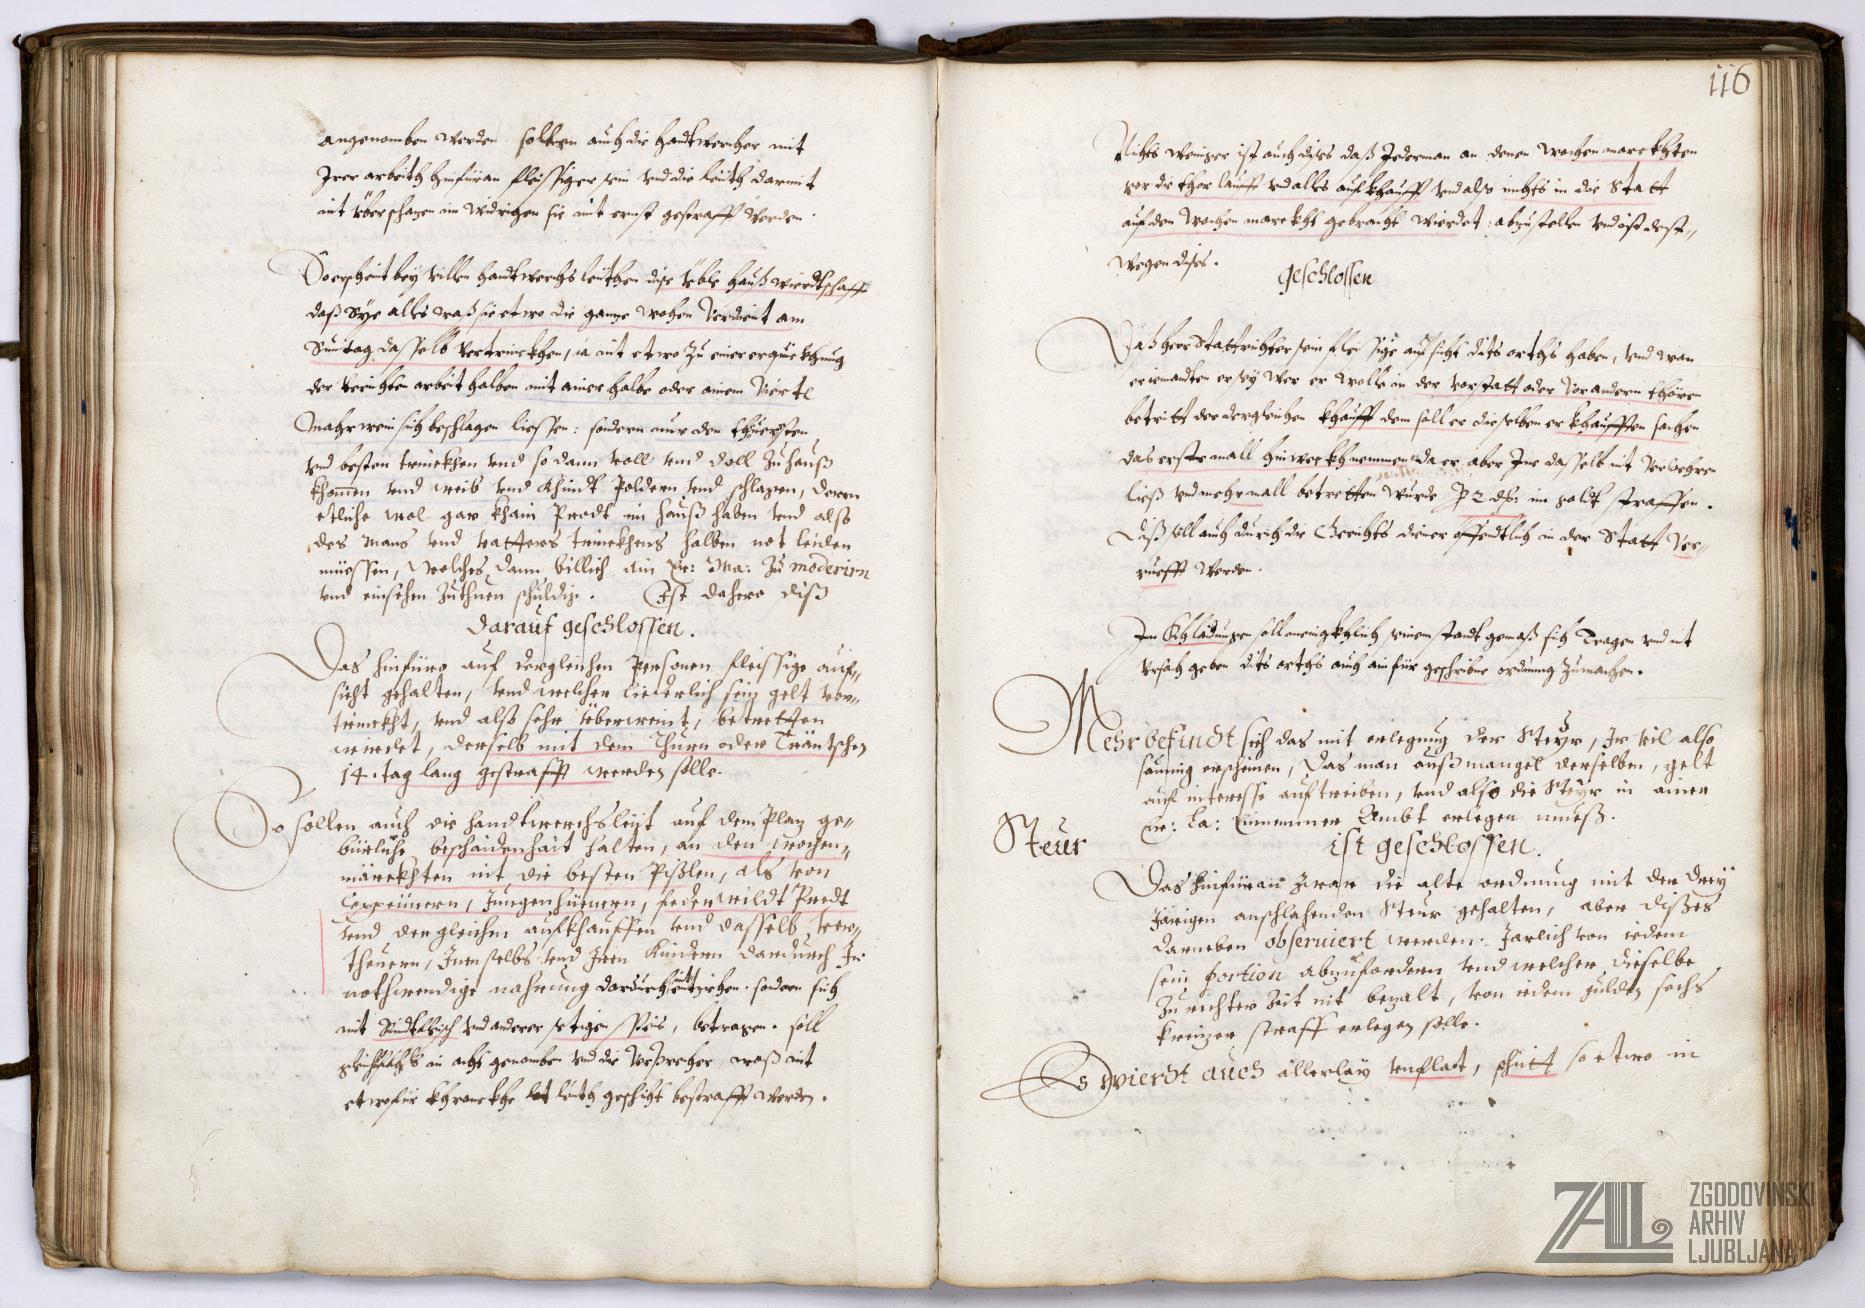 angenomben werden sollen auch die handtwercher mit
Irer arbeith hinfüran fleissiger sein vnd die leüth darmit
nit überschazen im widrigen sie mit ernst gestrafft werden.
So erscheint bey villen handtwerchs leüthen dise üble haußwierdtschafft
daß Sÿe alles waß sie etwo die ganze wochen verdient am
Suntag dasselb vertrinckhen, ia nit etwo zu einer erquickhung
der verrichten arbeit halben mit ainer halbe oder ainem viertl
wein sich beschlagen liessen: sondern nur den theüristen
vnd besten trinckhen vnd so dann voll vnd doll zu hauß
khommen vnd weib vnd khindt poldern vnd schlagen, deren
etliche wol gar khain Prodt im hauß haben vnd also
des Mans vnd vatters trinckhens halben not leiden
müessen, welches dann billich ain Er: Ma: zu moderirn
vnd einsehen zuthuen schuldig. Ist dahero diß
darauf geschlossen.
Das hinfüro auf dergleichen Personen fleissige auf-
sicht gehalten, vnd welcher liederlich sein gelt ver-
trinckht, vnd also sehr überweint, betretten
wierdet, derselb mit dem Thurn oder Träntschen
14. tag lang gestrafft werden solle.
So sollen auch die handtwerchsleüt auf dem Plaz ge-
bürliche beschaidenhait halten, an den wochen-
märckhten nit die besten Pißlen, als von
Coppeünern, Jungenhüenern, federwildt Predt
vnd dergleichen aufkhauffen vnd dasselb ver-
theuern, Inen selbs vnd Iren Kindern dardurch Ir
nothwendige nahrung dardurch entziehen. sondern sich
mit Rindtfleisch vnd anderer speis, betragen. soll
in acht genomben vnd die verbrecher, waß nit
etwo für khranckhe leüth geschicht bestrafft werden.
116
Nichts weniger ist auch dises daß Jederman an denen wochen marckhten
vor die thor laufft vnd alles aufkhaufft vnd also nichts in die Statt
auf den wochen marckht gebracht wierdet: abzustellen vnd ist dest-
wegen dises.
geschlossen
Daß herr Stattrichter sein fleissige aufsicht dits orths haben, vnd wan
er iemandten er seÿ wer er wolle in der vorstatt oder vor andern thören
betritt der dergleichen khaufft dem soll er dieselben erkhaufften sachen
das erste mall hinweckh nemmen da er aber Ime dasselb nit verwehren
ließ vnd mehrmall betretten wurde P 2 in goldt straffen.
Diß soll auch durich die Gerichts diener offentlich in der Statt ver-
ruefft werden.
In khlaidungen soll meniglkhlich seinem standt gemäß sich Tragen vnd nit
vrsach geben dits orths auch ain für geschribne ordnung zumachen.
Mehr befindt sich das mit erlegung der Steÿr, Ir vil also
saumig erscheinen, das man auß mangel derselben, gelt
auf interesse auftreiben, vnd also die Steÿr in ainer
Er: La: Einnemmer Ambt erlegen mueß.
Steur
ist geschlossen.
Das hinfüran zwar die alte ordnung mit der drey
järigen anschlahenden Steur gehalten, aber dißes
darneben obseruiert werden: Jarlich von iedem
sein portion abzufordern vnd welcher dieselbe
zu rechter Zeit nit bezalt, von iedem gulden sechs
kreüzer straff erlegen solle.
Es wierdt auch allerlaÿ vnflat, schütt so etwo in
ZGODOVINSKI
ARHIV
LJUBLJANA